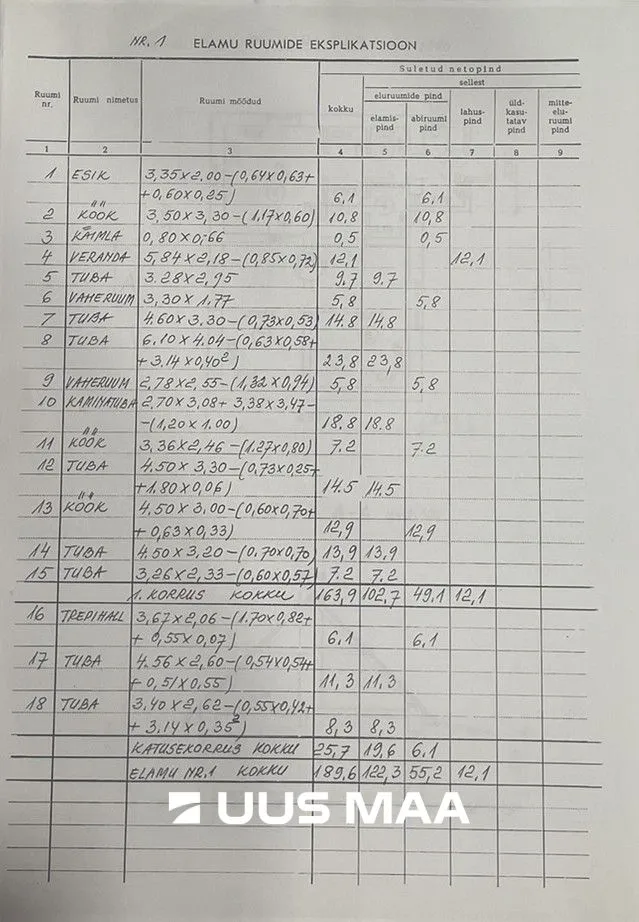 NR. 1 ELAMU RUUMIDE EKSPLIKATSIOON
Suletud netopind
sellest
Ruumi nr. Ruumi nimetus Ruumi mõõdud kokku eluruumide pind lahus-pind üld-kasu-tatav pind mitte-elu-ruumi pind
elamis-pind abiruumi pind
1 2 3 4 5 6 7 8 9
1 ESIK 3,35×2,00-(0,64×0,63+
+0,60×0,25) 6,1 6,1
2 KÖÖK 3,50×3,30-(1,17×0,60) 10,8 10,8
3 KÄIMLA 0,80×0,66 0,5 0,5
4 VERANDA 5,84×2,18-(0,85×0,72) 12,1 12,1
5 TUBA 3.28×2,95 9.7 9.7
6 VAHERUUM 3,30×1.77 5,8 5,8
7 TUBA 4.60×3.30-(0,73×0,53) 14.8 14.8
8 TUBA 6.10×4.04-(0,63×0,58+
+3.14×0,40²) 23,8 23,8
9 VAHERUUM 2,78×2,55-(1,32×0,94) 5,8 5,8
10 KAMINATUBA 2,70×3,08+3,38×3,47-
-(1,20×1.00) 18.8 18.8
11 KÖÖK 3,36×2,46-(1.27×0,80) 7.2 7.2
12 TUBA 4.50×3,30-(0,73×0,25+
+1.80×0,06) 14.5 14,5
13 KÖÖK 4.50×3,00-(0,60×0,70+
+0,63×0,33) 12,9 12,9
14 TUBA 4.50×3,20-(0.70×0,70) 13,9 13,9
15 TUBA 3,26×2,33-(0,60×0,57) 7.2 7.2
1. KORRUS KOKKU 163,9 102,7 49.1 12,1
16 TREPIHALL 3,67×2,06-(1.70×0,82+
+0,55×0,07) 6.1 6,1
17 TUBA 4.56×2,60-(0,54×0,54+
+0,51×0,55) 11,3 11,3
18 TUBA 3.40×2,62-(0,55×0,42+
+3.14×0,35²) 8,3 8,3
KATUSEKORRUS KOKKU 25,7 19,6 6,1
ELAMU NR.1 KOKKU 189,6 122,3 55,2 12,1
UUS MAA